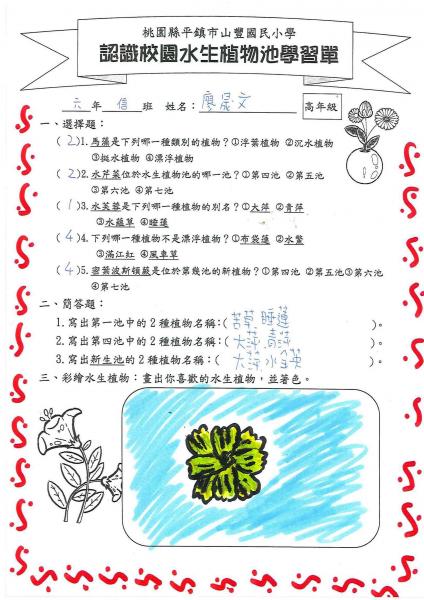 桃園縣平鎮市山豐國民小學
認識校園水生植物池學習單
六年 信 班 姓名：廖晨文 高年級
一、選擇題：
(2)1.馬藻是下列哪一種類別的植物？①浮葉植物 ②沉水植物
③挺水植物 ④漂浮植物
(2)2.水芹菜位於水生植物池的哪一池？①第四池 ②第五池
③第六池 ④第七池
(1)3.水芙蓉是下列哪一種植物的別名？①大萍 ②青萍
③水蘊草 ④睡蓮
(4)4.下列哪一種植物不是漂浮植物？①布袋蓮 ②水鱉
③滿江紅 ④風車草
(4)5.密葉波斯頓蕨是位於第幾池的新植物？①第四池 ②第五池③第六池
④第七池
二、簡答題：
1.寫出第一池中的2種植物名稱：(苦草,睡蓮)。
2.寫出第四池中的2種植物名稱：(大萍,青萍)。
3.寫出新生池的2種植物名稱：(大萍,水金英)。
三、彩繪水生植物：畫出你喜歡的水生植物，並著色。